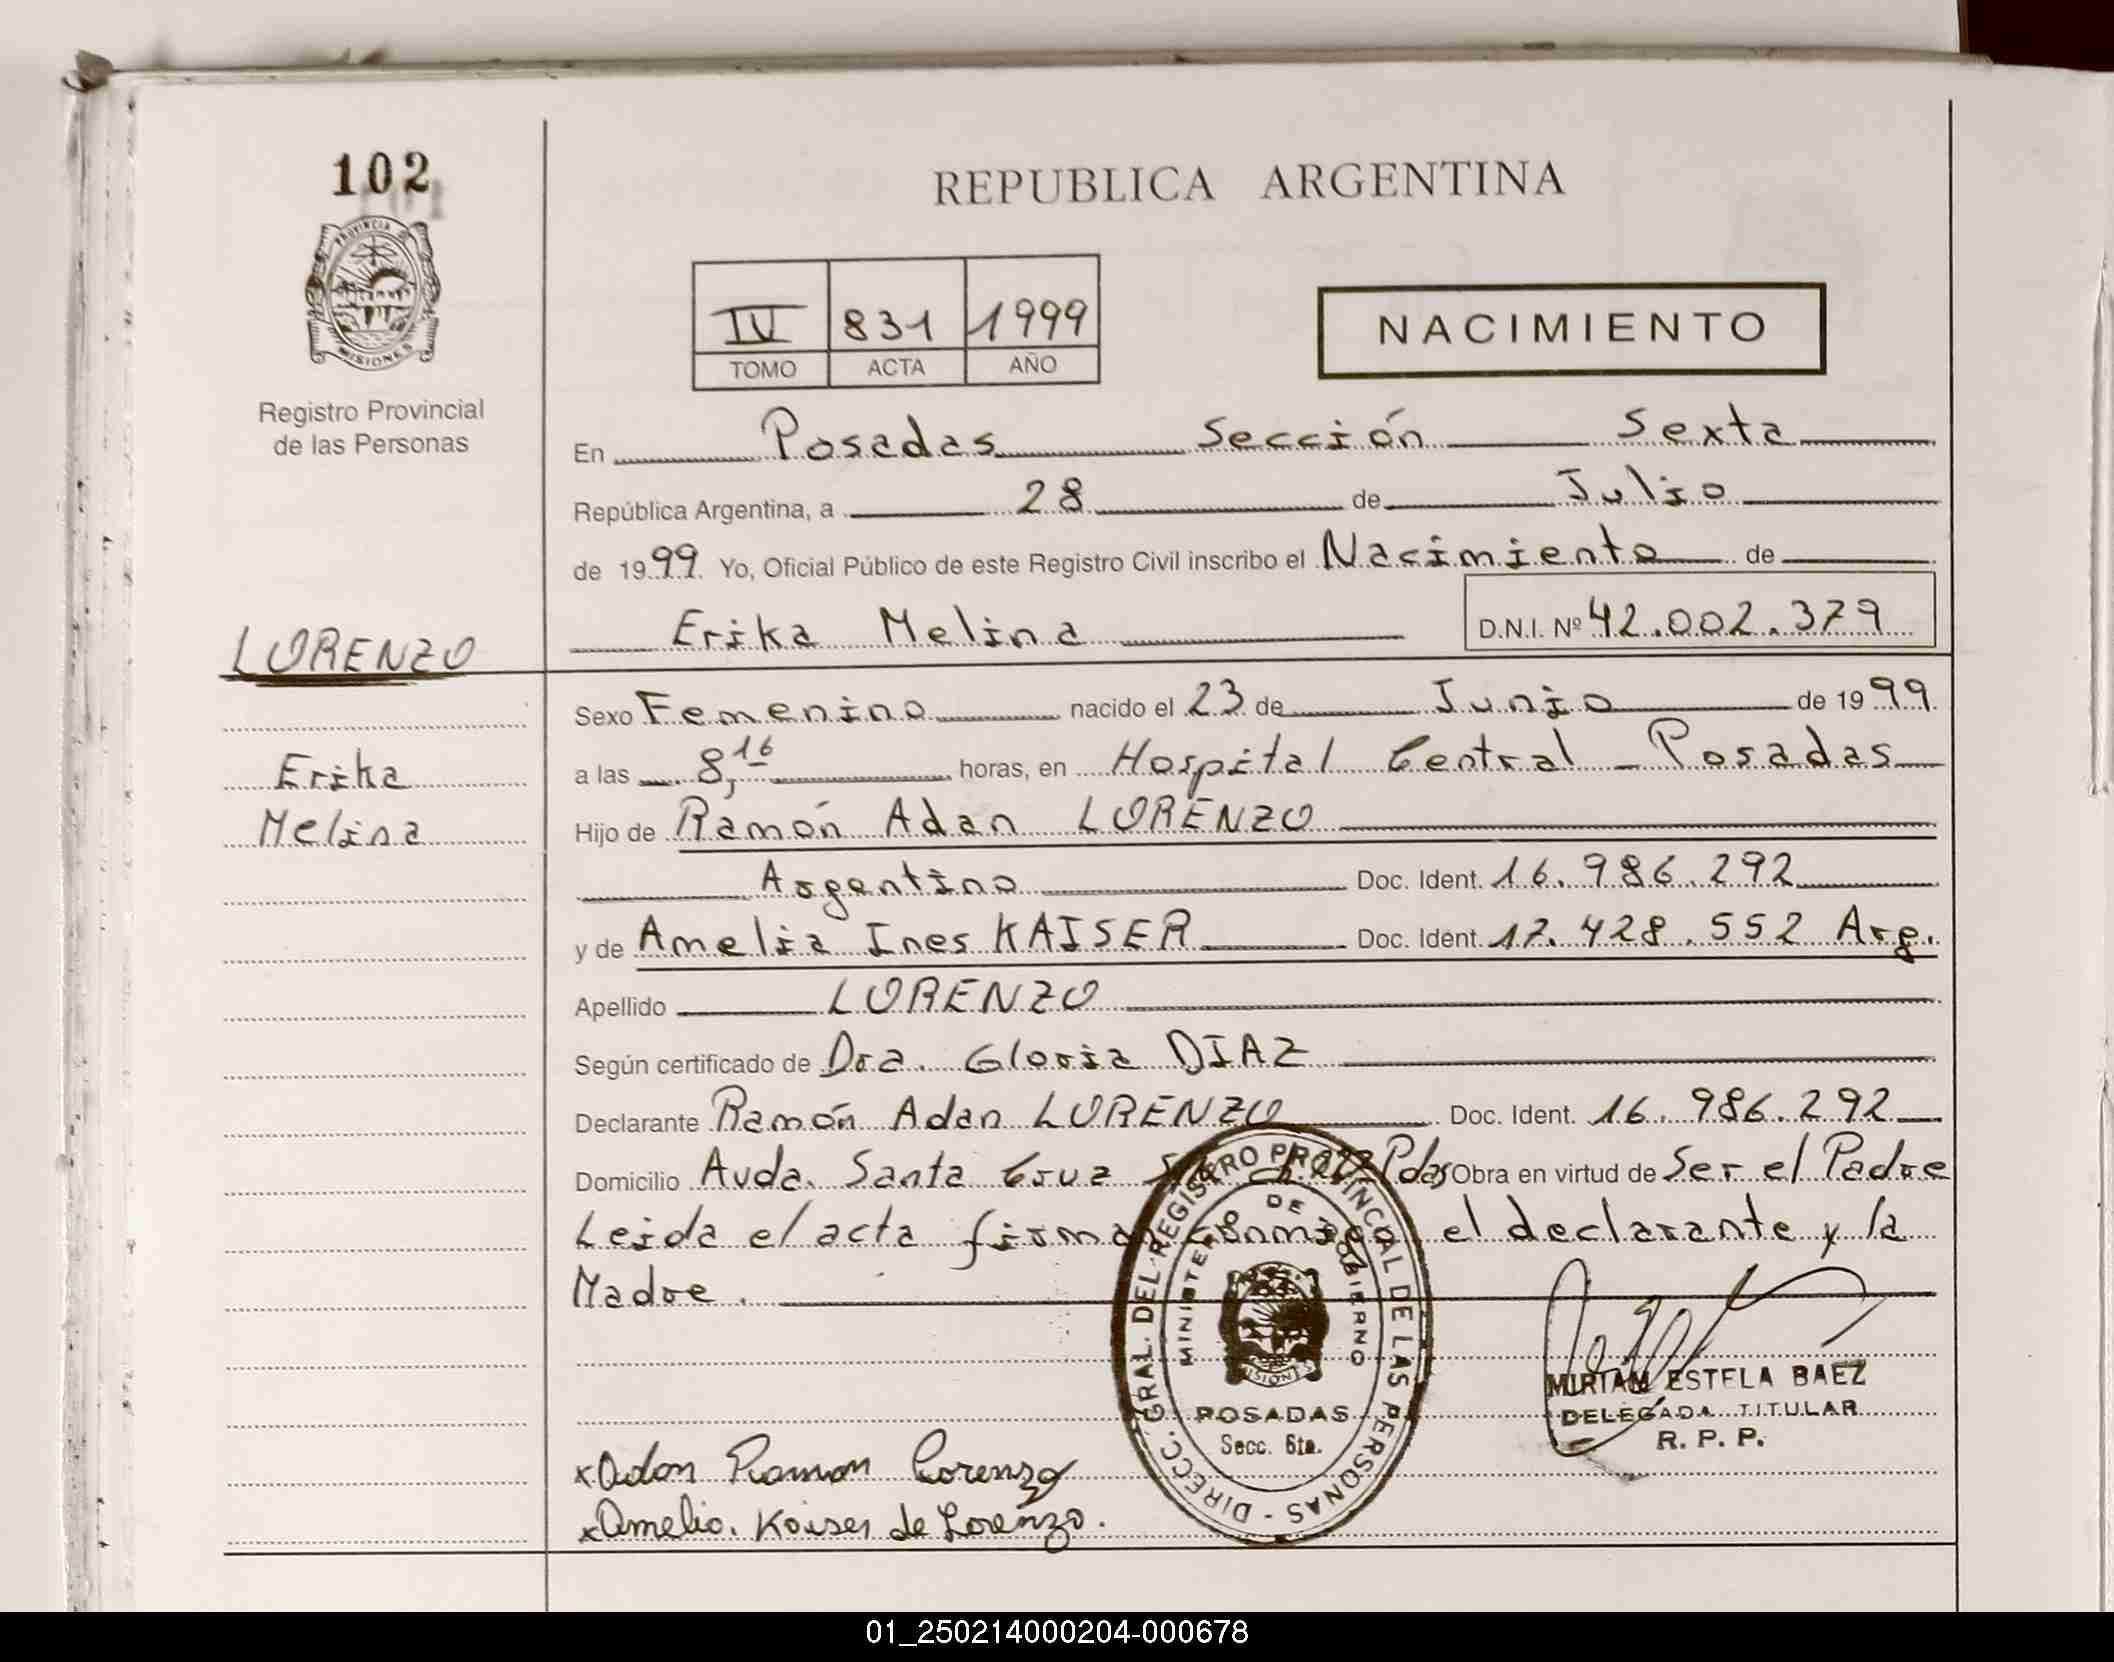 102
REPUBLICA ARGENTINA
PROVINCIA DE
MISIONES
Registro Provincial
de las Personas
IV 831 1999
TOMO ACTA AÑO
NACIMIENTO
En Posadas Sección Sexta
República Argentina, a 28 de Julio
de 1999 Yo, Oficial Público de este Registro Civil inscribo el Nacimiento de
Erika Melina D.N.I. Nº 42.002.379
LORENZO
Erika
Melina
Sexo Femenino nacido el 23 de Junio de 1999
a las 8,16 horas, en Hospital Central - Posadas
Hijo de Ramón Adan LORENZO
Argentino Doc. Ident. 16.986.292
y de Amelia Ines KAISER Doc. Ident. 17.428.552 Arg.
Apellido LORENZO
Según certificado de Dra. Gloria DIAZ
Declarante Ramón Adan LORENZO Doc. Ident. 16.986.292
Domicilio Avda. Santa Cruz Pdas Obra en virtud de Ser el Padre
Leida el acta firman conmigo el declarante y la
Madre.
DIRECC. GRAL. DEL REGISTRO PROVINCIAL DE LAS PERSONAS -
MINISTERIO DE GOBIERNO
POSADAS
Secc. 6ta.
MIRIAM ESTELA BAEZ
DELEGADA TITULAR
R. P. P.
x Adan Ramon Lorenzo
x Amelia. Kaiser de Lorenzo.
01_250214000204-000678